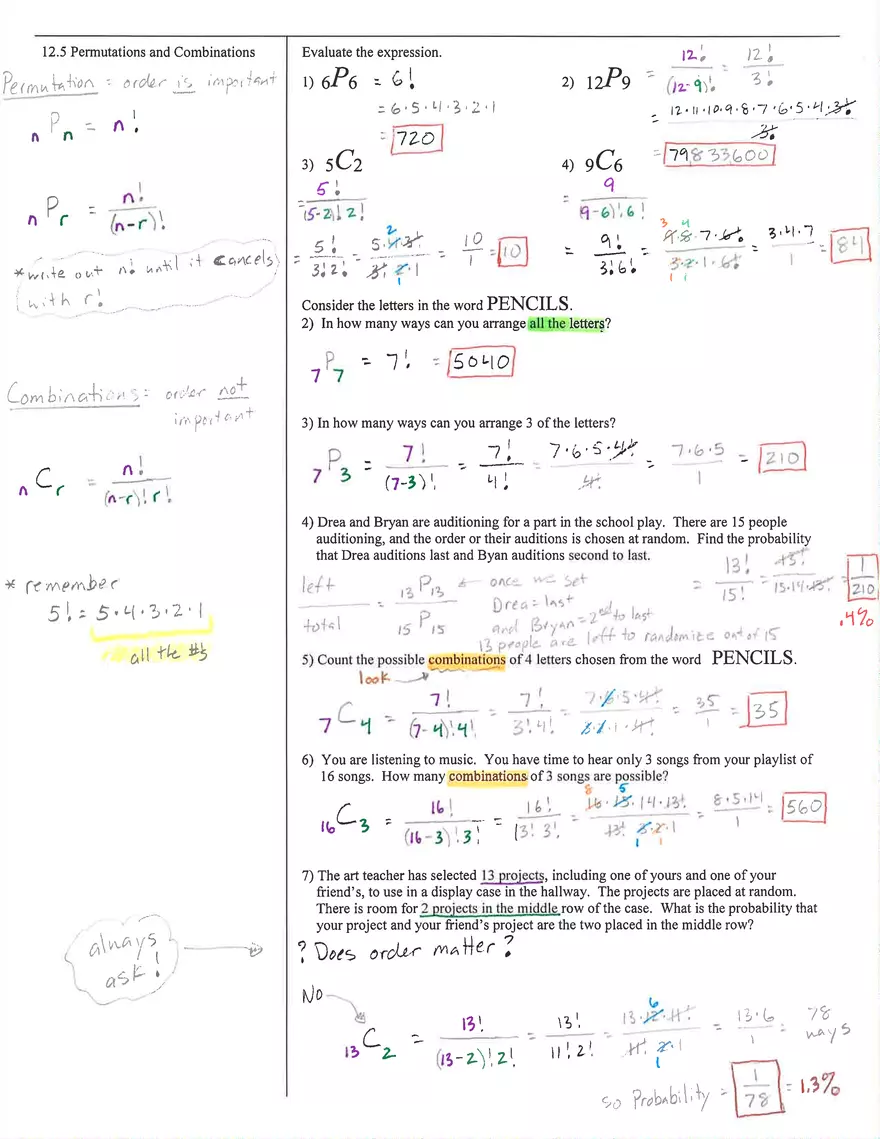 12.5 Permutations and Combinations
Permutation = order is important
nPn = n!
nPr = n!/(n-r)!
*write out n! until it cancels
with r!
Combinations = order not
important
nCr = n!/(n-r)! r!
* remember
5! = 5·4·3·2·1
all the #s
always
ask!
Evaluate the expression.
1) 6P6 = 6!
= 6·5·4·3·2·1
= 720
2) 12P9 = 12!/(12-9)! = 12!/3!
= 12·11·10·9·8·7·6·5·4·3!/3!
= 79833600
3) 5C2
= 5!/(5-2)! 2!
= 5!/3! 2! = 5·4·3!/3! 2·1 = 10/1 = 10
2
1
4) 9C6
= 9/(9-6)! 6!
= 9!/3! 6! = 9·8·7·6!/3·2·1·6! = 3·4·7/1 = 84
3 4
1 1
Consider the letters in the word PENCILS.
2) In how many ways can you arrange all the letters?
7P7 = 7! = 5040
3) In how many ways can you arrange 3 of the letters?
7P3 = 7!/(7-3)! = 7!/4! = 7·6·5·4!/4! = 7·6·5/1 = 210
4) Drea and Bryan are auditioning for a part in the school play. There are 15 people
auditioning, and the order or their auditions is chosen at random. Find the probability
that Drea auditions last and Byan auditions second to last.
left/total = 13P13/15P15
once we set
Drea = last
and Bryan = 2nd to last
13 people are left to randomize out of 15
= 13!/15! = 13!/15·14·13! = 1/210
.4%
5) Count the possible combinations of 4 letters chosen from the word PENCILS.
look
7C4 = 7!/(7-4)! 4! = 7!/3! 4! = 7·6·5·4!/3·2·1·4! = 35/1 = 35
6) You are listening to music. You have time to hear only 3 songs from your playlist of
16 songs. How many combinations of 3 songs are possible?
16C3 = 16!/(16-3)! 3! = 16!/13! 3! = 16·15·14·13!/13! 3·2·1 = 8·5·14/1 = 560
8 5
1 1
7) The art teacher has selected 13 projects, including one of yours and one of your
friend's, to use in a display case in the hallway. The projects are placed at random.
There is room for 2 projects in the middle row of the case. What is the probability that
your project and your friend's project are the two placed in the middle row?
? Does order matter?
No
13C2 = 13!/(13-2)! 2! = 13!/11! 2! = 13·12·11!/11! 2·1 = 13·6/1 = 78 ways
6
1
so Probability = 1/78 = 1.3%